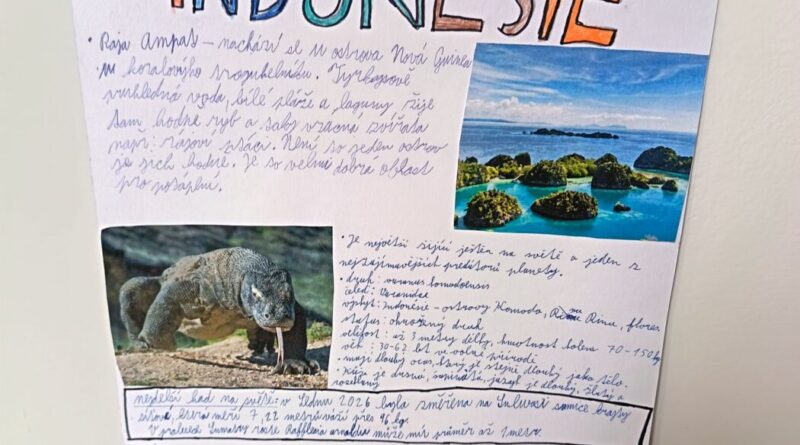 INDONÉSIE
• Raja Ampat – nachází se u ostrova Nová Guinea
v koralového trojuhelníku. Tyrkysově
průhledná voda, bílé pláže a laguny žije
tam hodně ryb a taky vzacná zvířata
např: rájov ptáci. Není to jeden ostrov
je jich hodně. Je to velmi dobrá oblast
pro potápění.
• Je největší žijící ještěr na světě a jeden z
nejzajímavějších preditorů planety.
• druh: varanus komodoensis
čeleď: Varanidae
výskyt: Indonésie – ostrovy Komodo, Rinu, flores.
status: ohrožený druh
velikost: až 3 metry délky, hmotnost kolem 70–150 kg
věk: 30–62 let ve volné přírodě
• mají dlouhý ocas, který je stejně dlouhý jako tělo.
• Kůže je drsná, jazyk je dlouhý, žlutý a
rozeklaný
nejdelší had na světě: v Lednu 2026 byla změřena na Sulawesi samice krajty
která měří 7,22 metrů váží přes 96 kg.
V pralesech Sumatry roste Rafflesia arnoldia může mít průměr až 1 metr.